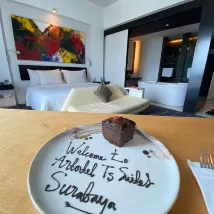 Welcome to
Artotel TS Suites
Surabaya